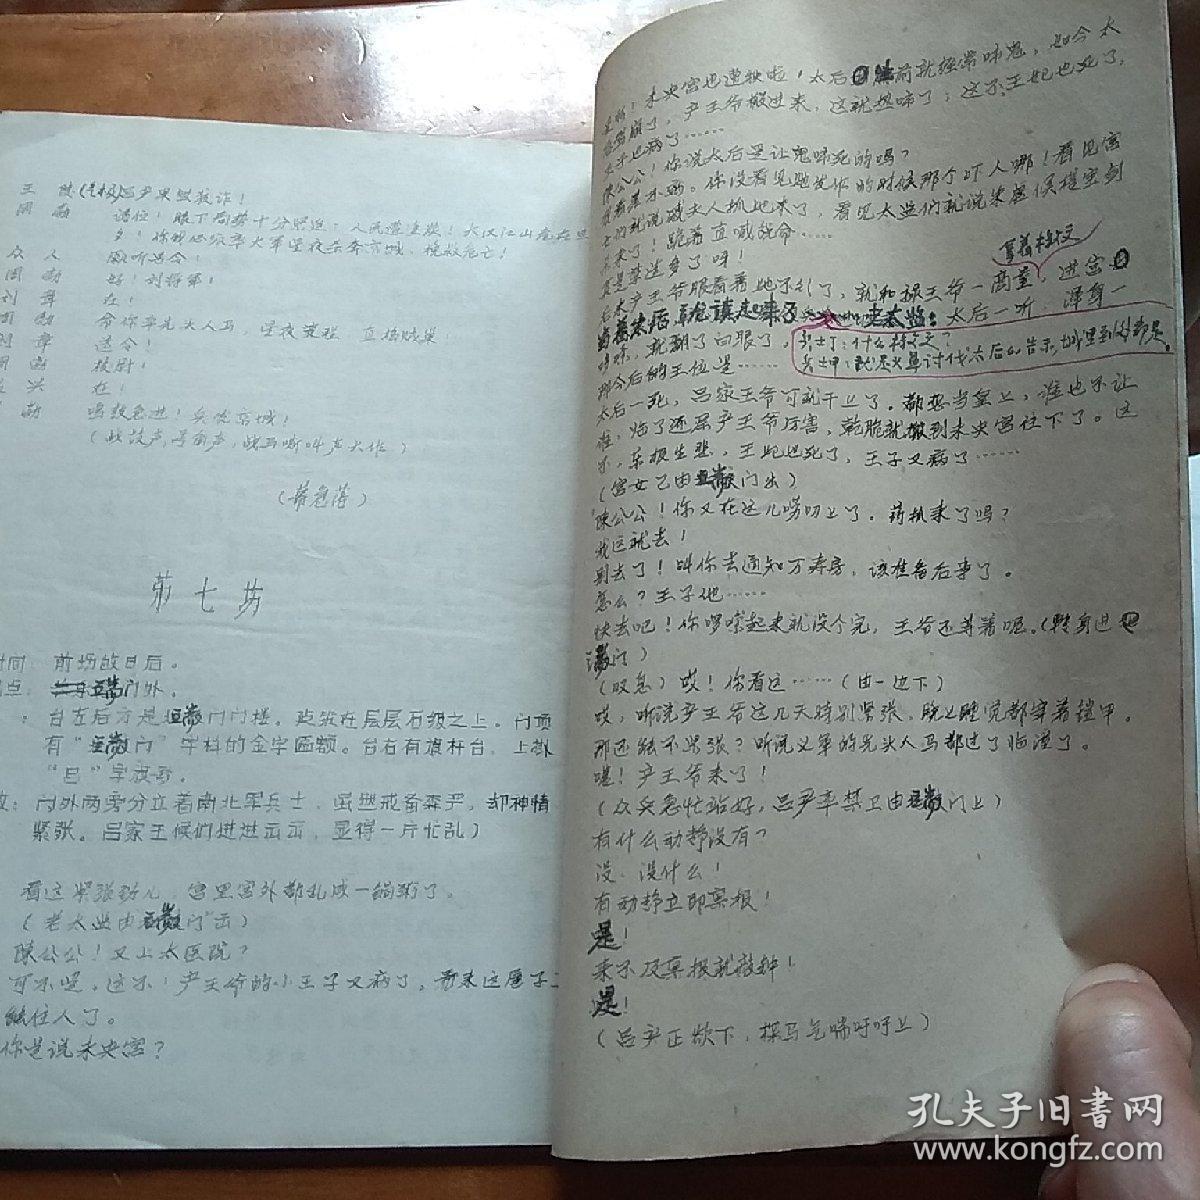 王 陵(怒极)吕产果然狡诈!
周 勃 诸位!眼下局势十分紧迫,人民遭涂炭!大汉江山危在旦
夕!你我必须率大军星夜奔赴京城,挽救危亡!
众 人 愿听号令!
周 勃 好!刘将军!
刘 章 在!
周 勃 令你率先头人马,星夜兼程,直捣贼巢
刘 章 遵令!
周 勃 校尉!
兴 在!
勃 鸣鼓急进!兵伐京城!
(战鼓声,号角声,战马嘶叫声大作)
(幕急落)
第七场
时间:前场数日后。
地点:端门外。
:台左后方是端门门楼。建筑在层层石级之上。门顶
有“端门”字样的金字匾额。台右有旗杆台,上挂
“吕”字旗帜。
门外两旁分立着南北军兵士,虽是戒备森严,却神情
紧张。吕家王侯们进进出出,显得一片忙乱)
看这紧张劲儿,宫里宫外都乱成一锅粥了。
(老太监由端门出)
陈公公!又上太医院?
可不是,这不!产王爷的小王子又病了,看来这屋子
能住人了。
你是说未央宫?
是哟!未央宫也遭殃啦!太后前就经常闹鬼,如今太
后驾崩了,产王爷搬过来,这就热闹了;这不,王妃也死了,
太子也病了……
陈公公!你说太后是让鬼吓死的吗?
你没看见她发作的时候那个吓人哪!看见宫
女们就说戚夫人抓她来了,看见太监们就说
来了!跪着直喊饶命……
真是孽造多了呀!
后来产王爷眼看着她不行了,就和禄王爷一商量,进宫
拿着檄文
老太监:太后一听,浑身一
哆嗦,就翻了白眼了。
兵士丁:什么檄文?
兵士甲:就是义军讨伐太后的告示,城里到处都是。
那今后的王位是……
太后一死,吕家王爷可就干上了。都想当皇上,谁也不让
谁,临了还是产王爷厉害,乾脆就搬到未央宫住下了。这
不,乐极生悲,王妃也死了,王子又病了……
(宫女乙由端门出)
陈公公!你又在这儿唠叨上了。药抓来了吗?
我这就去!
别去了!叫你去通知万寿房,该准备后事了。
怎么?王子他……
快去吧!你啰嗦起来就没个完,王爷还等着呢。(转身进
端门)
(叹息)哎!你看这……(由一边下)
哎,听说产王爷这几天特别紧张,晚上睡觉都穿着铠甲。
那还能不紧张?听说义军的先头人马都过了临潼了。
嘘!产王爷来了!
(众兵急忙站好,吕产率禁卫由端门上)
有什么动静没有?
没、没什么!
有动静立即禀报!
是!
来不及禀报就敲钟!
是!
(吕产正欲下,探马气喘吁吁上)
孔夫子旧书网
www.kongfz.com